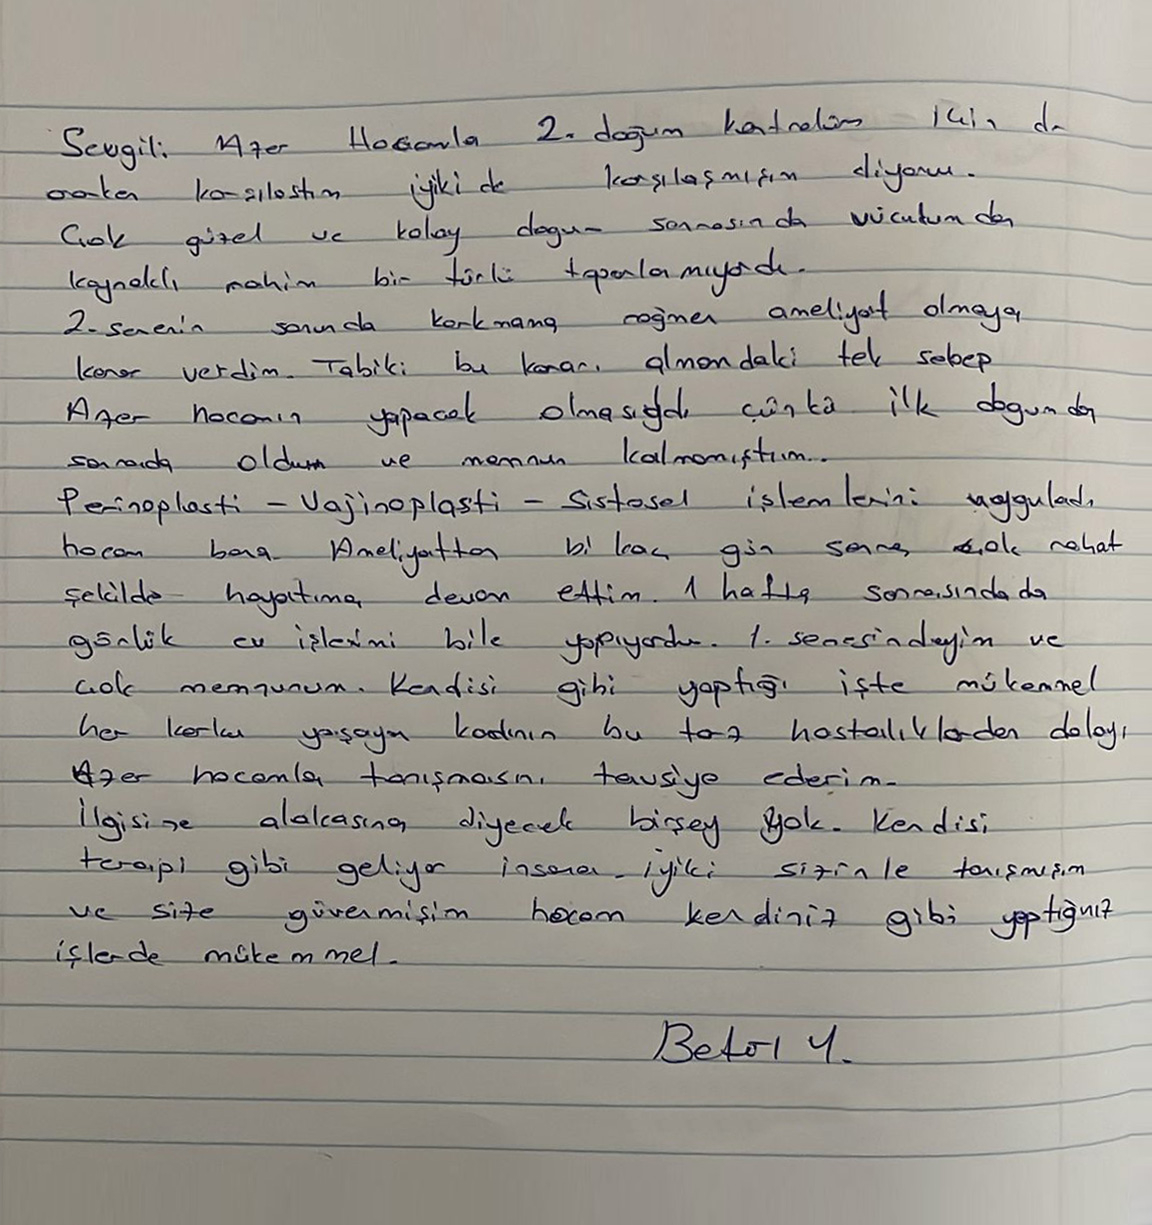 Sevgili Azer Hocamla 2. doğum kontrolüm için dr
ararken karşılaştım iyiki de karşılaşmışım diyorum.
Çok güzel ve kolay doğum sonrasında vücutumdan
kaynaklı rahim bir türlü toparlamıyordu.
2. senenin sonunda korkmama rağmen ameliyat olmaya
karar verdim. Tabiki bu kararı almamdaki tek sebep
Azer hocanın yapacak olmasıydı çünkü ilk doğumdan
sonrada oldum ve memnun kalmamıştım..
Perinoplasti - Vajinoplasti - Sistosel işlemlerini uyguladı
hocam bana. Ameliyattan bi kaç gün sonra çok rahat
şekilde hayatıma devam ettim. 1 hafta sonrasında da
günlük ev işlerimi bile yapıyordum. 1. senesindeyim ve
çok memnunum. Kendisi gibi yaptığı işte mükemmel
her korku yaşayan kadının bu tarz hastalıklardan dolayı
Azer hocamla tanışmasını tavsiye ederim.
İlgisine alakasına diyecek birşey yok. Kendisi
terapi gibi geliyor insana. iyiki sizinle tanışmışım
ve size güvenmişim hocam kendiniz gibi yaptığınız
işlerde mükemmel.
Betül Y.